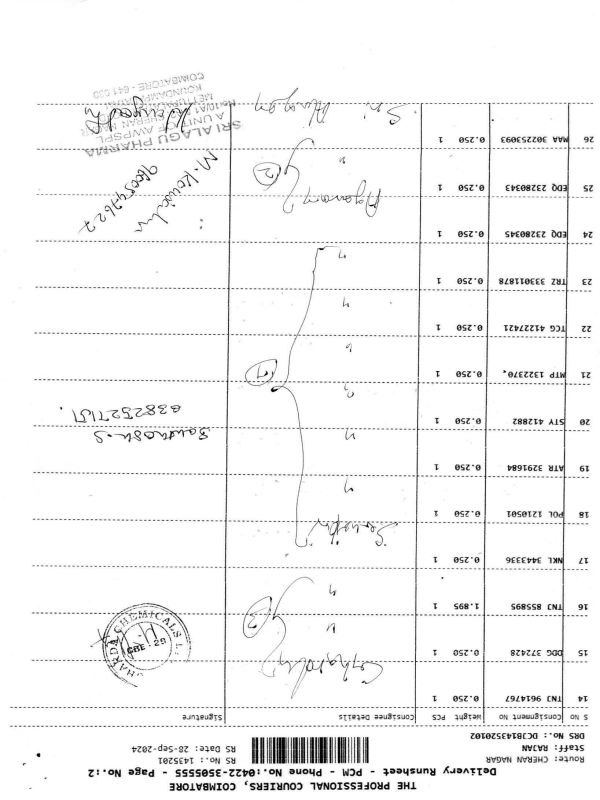 THE PROFESSIONAL COURIERS, COIMBATORE
Delivery Runsheet - PCM - Phone No.:0422-3505555 - Page No.:2
Route: CHERAN NAGAR
Staff: RAJAN
DRS No.: DCJB1435201O2
RS No.: 1435201
RS Date: 28-Sep-2024
S NO Consignment NO Weight PCS Consignee Details Signature
14 TNJ 9614767 0.250 1
15 DGG 372428 0.250 1 "
16 TNJ 855895 1.895 1 "
3
CHEMICALS
CBE - 29
17 NKL 3443336 0.250 1
18 POL 1210501 0.250 1 "
19 ATR 3291684 0.250 1 "
20 STY 412882 0.250 1 "
Santhosh.S
21 MTP 1322370 0.250 1 "
22 TCG 41227421 0.250 1 "
23 TRZ 333011878 0.250 1 "
24 EDQ 23280345 0.250 1
25 EDQ 23280343 0.250 1 "
2
26 MAA 302253093 0.250 1 Sri
SRI ALAGU PHARMA
A UNIT OF AWPSPL
COIMBATORE - 641 030